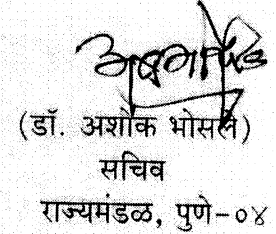 (डॉ. अशोक भोसले)
सचिव
राज्यमंडळ, पुणे-०४